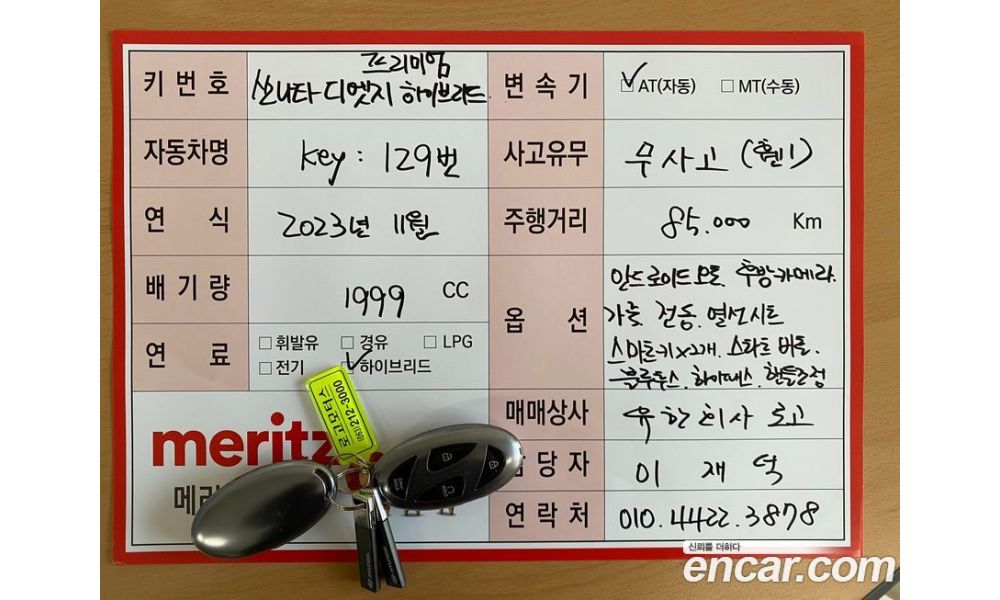 키번호 프리미엄
쏘나타 디엣지 하이브리드
변속기 ✓AT(자동) □MT(수동)
자동차명 key : 129번
사고유무 무사고 (휀1)
연식 2023년 11월
주행거리 85.000 Km
배기량 1999 CC
옵션 안드로이드오토. 후방카메라.
가죽 전동. 열선시트
스마트키x2개. 스타트 버튼.
블루투스. 하이패스. 핸들조정
연료 □휘발유 □경유 □LPG
□전기 ✓하이브리드
매매상사 유한회사 로고
당자 이재덕
연락처 010.4422.3878
meritz
메리
로고모터스
(063)212-3000
신뢰를 더하다
encar.com